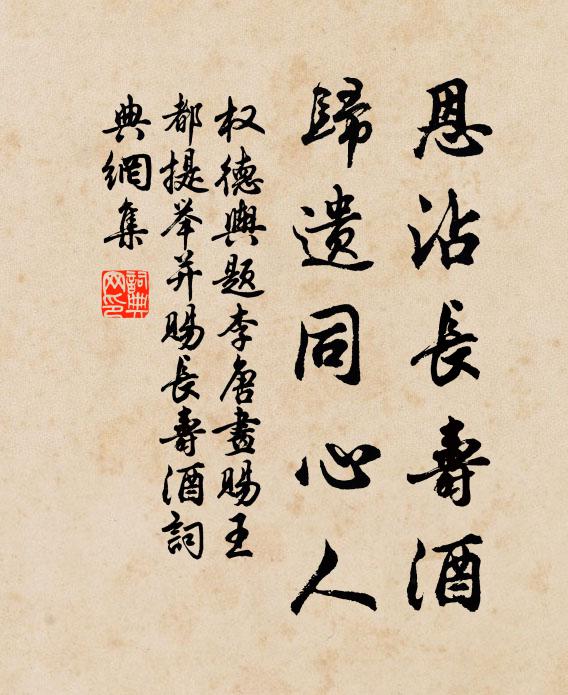 恩沾長壽酒
歸遺同心人
权德輿题李唐畫赐王
都提举并赐長壽酒詞
典網集
詞典
网印